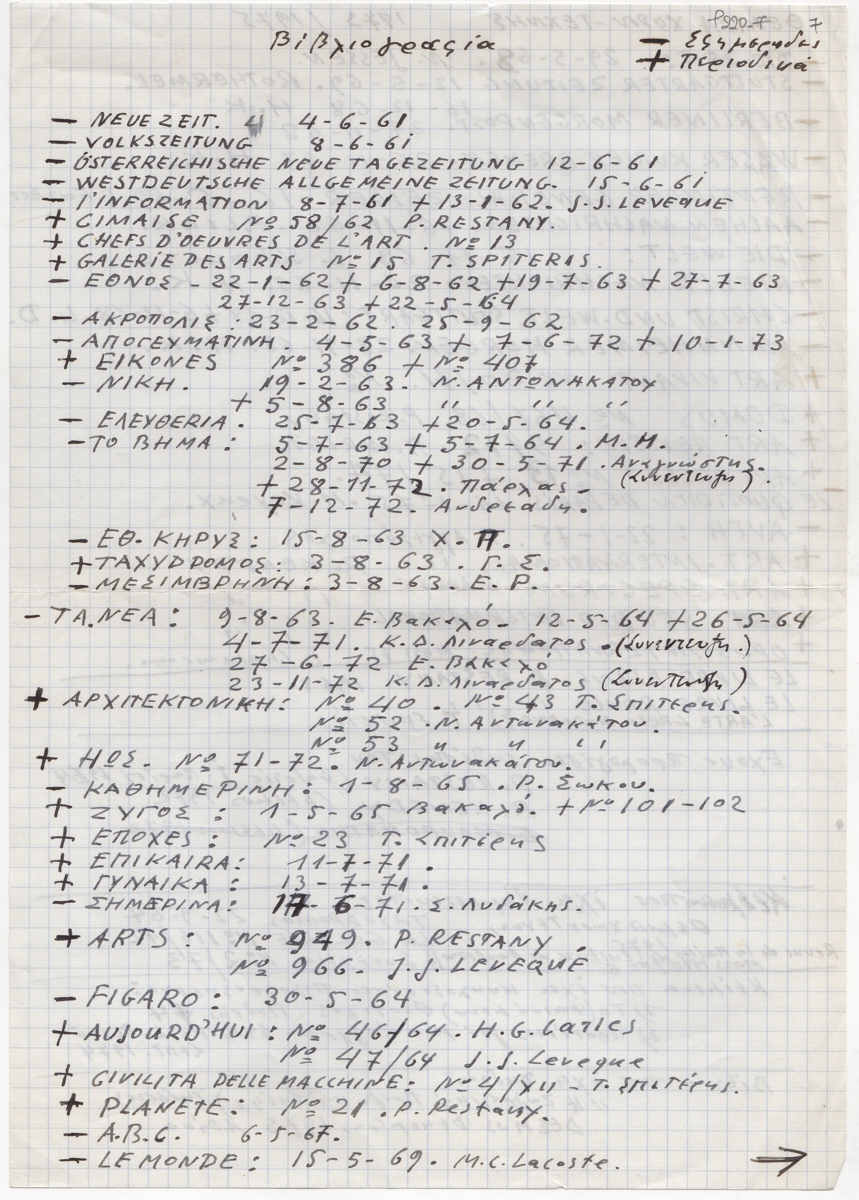 P220-7 7
Βιβλιογραφία — Εφημερίδες
+ Περιοδικά
— NEUE ZEIT. 4-6-61
— VOLKSZEITUNG 8-6-61
— ÖSTERREICHISCHE NEUE TAGEZEITUNG 12-6-61
— WESTDEUTSCHE ALLGEMEINE ZEITUNG. 15-6-61
— l'INFORMATION 8-7-61 + 13-1-62. J.J. LEVEQUE
+ CIMAISE No 58/62 P. RESTANY.
+ CHEFS D'OEUVRES DE L'ART. No 13
+ GALERIE DES ARTS No 15 T. SPITERIS.
— ΕΘΝΟΣ - 22-1-62 + 6-8-62 + 19-7-63 + 27-7-63
27-12-63 + 22-5-64
— ΑΚΡΟΠΟΛΙΣ : 23-2-62. 25-9-62
— ΑΠΟΓΕΥΜΑΤΙΝΗ. 4-5-63 + 7-6-72 + 10-1-73
+ ΕΙΚΟΝΕS No 386 + No 407
— ΝΙΚΗ. 19-2-63. Ν. ΑΝΤΩΝΗΚΑΤΟΥ
+ 5-8-63 " " "
— ΕΛΕΥΘΕRΙΑ. 25-7-63 + 20-5-64.
— ΤΟ ΒΗΜΑ : 5-7-63 + 5-7-64. Μ.Μ.
2-8-70 + 30-5-71. Αναγνώστης.
+ 28-11-72. Πάρλας - (Συνεντευξη).
7-12-72. Ανδρεάδη.
— ΕΘ. ΚΗΡΥΞ : 15-8-63 Χ. Π.
+ ΤΑΧΥDΡΟΜΟΣ : 3-8-63. Γ. Σ.
— ΜΕΣΙΜΒΡΗΝΗ : 3-8-63. Ε. Ρ.
— ΤΑ. ΝΕΑ : 9-8-63. Ε. Βακαλό - 12-5-64 + 26-5-64
4-7-71. Κ. Δ. Λιναρδατος. (Συνεντευξη.)
27-6-72 Ε. Βακαλό
23-11-72 Κ. Δ. Λιναρδατος (Συνεντευξη)
+ ΑΡΧΙΤΕΚΤΟΝΙΚΗ : No 40. No 43 Τ. Σπιτερης.
No 52. Ν. Αντωνακάτου.
No 53 " " "
+ ΗΩΣ. No 71-72. Ν. Αντωνακάτου.
— ΚΑΘΗΜΕΡΙΝΗ : 1-8-65. Ρ. Σωκου.
+ ΖΥΓΟΣ : 1-5-65 Βακαλό. + No 101-102
+ ΕΠΟΧΕS : No 23 Τ. Σπιτέρης
+ ΕΠΙΚΑΙRΑ : 11-7-71.
+ ΓΥΝΑΙΚΑ : 13-7-71.
— ΣΗΜΕΡΙΝΑ : 17-6-71. Σ. Λυδάκης.
+ ARTS : No 949. P. RESTANY.
No 966. J.J. LEVEQUE
— FIGARO : 30-5-64
+ AUJOURD'HUI : No 46/64. H.G.
No 47/64 J.J. Leveque
+ CIVILITA DELLE MACCHINE : No 4/XII - Τ. Σπιτέρης.
+ PLANETE : No 21. P. Restany.
— A.B.C. 6-5-67.
— LE MONDE : 15-5-69. M.C. Lacoste. →